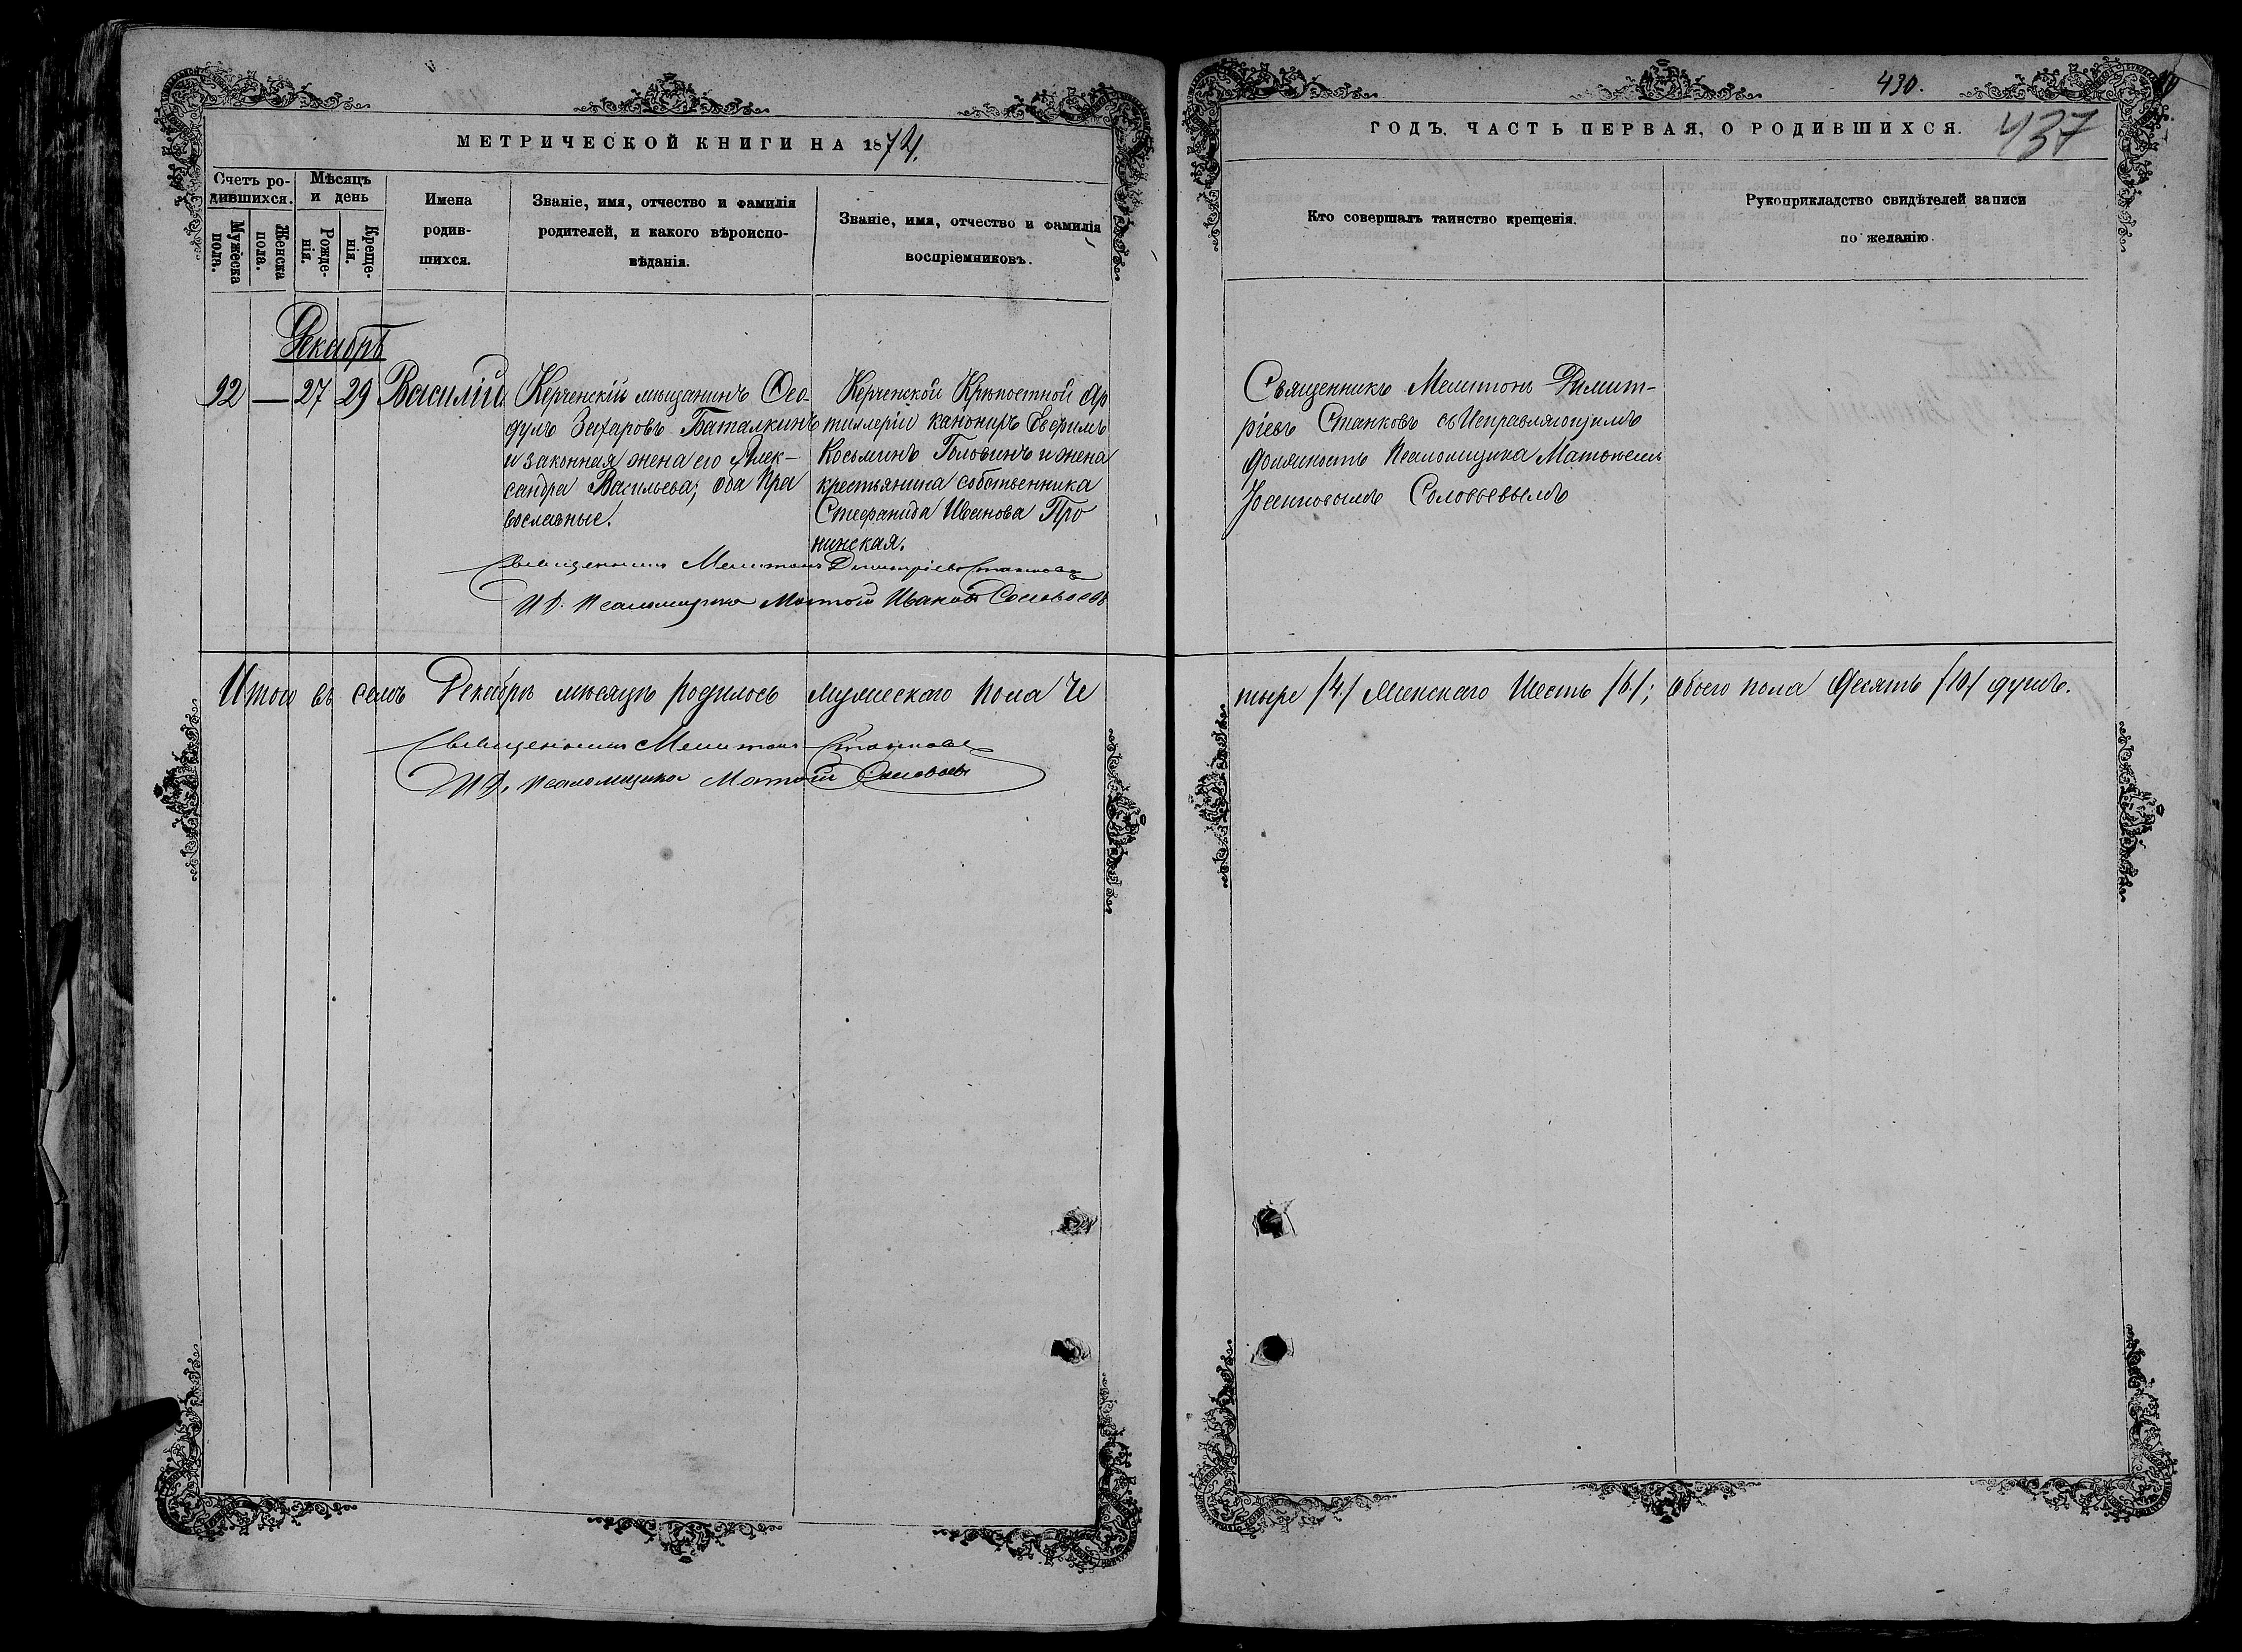 МЕТРИЧЕСКОЙ КНИГИ НА 1874.
Счетъ ро-
дившихся.
Мужеска
пола.
Женска
пола.
Мѣсяцъ
и день
Рожде-
нія.
Креще-
нія.
Имена
родив-
шихся.
Званіе, имя, отчество и фамилія
родителей, и какого вѣроиспо-
вѣданія.
Званіе, имя, отчество и фамилія
воспріемниковъ.
Декабрь
92 — 27 29 Василій
Керченскій мѣщанинъ Ѳео
дулъ Захаровъ Баталкинъ
и законная жена его Алек-
сандра Васильева; оба Пра
вославные.
Керченской Крѣпостной Ар
тиллеріи канониръ Евфимъ
Косьминъ Головинъ и жена
крестьянина собственника
Стефанида Иванова Про
нинская.
Священникъ Мелитонъ Димитріевъ Станковъ
И. Д. Псаломщика Матѳій Ивановъ Соловьевъ
Итого въ семъ Декабрѣ мѣсяцѣ родилось мужескаго пола че
Священникъ Мелитонъ Станковъ
И. Д. Псаломщика Матѳій Соловьевъ
430.
437
ГОДЪ, ЧАСТЬ ПЕРВАЯ, О РОДИВШИХСЯ.
Кто совершалъ таинство крещенія.
Рукоприкладство свидѣтелей записи
по желанію.
Священникъ Мелитонъ Димит-
ріевъ Станковъ съ Исправляющимъ
должность Псаломщика Матѳеемъ
Іоанновымъ Соловьевымъ
тыре /4/ Женскаго Шесть /6/; обоего пола Десять /10/ душъ.